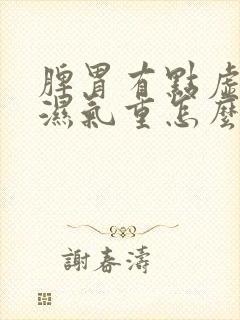 脾胃有點虛
濕氣重怎麼
謝春濤